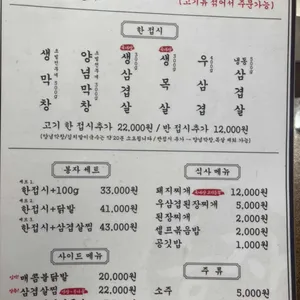 [고기류 섞어서 주문가능]
한 접시
생막창 초벌전무게 300g
양념막창 초벌전무게 300g
생삼겹살 300g
생목살 300g
우삼겹 400g
냉동삼겹살
고기 한 접시추가 22,000원 / 반 접시추가 12,000원
홍자 세트
세트1.
한접시+100g 33,000원
세트2.
한접시+닭발 41,000원
세트3.
한접시+삼겹살찜 43,000원
식사 메뉴
돼지찌개 12,000원
우삼겹된장찌개 5,000원
된장찌개 2,000원
셀프볶음밥 2,000원
공깃밥 1,000원
사이드 메뉴
매콤불닭발 20,000원
삼겹살찜 22,000원
주 류
소주 5,000원